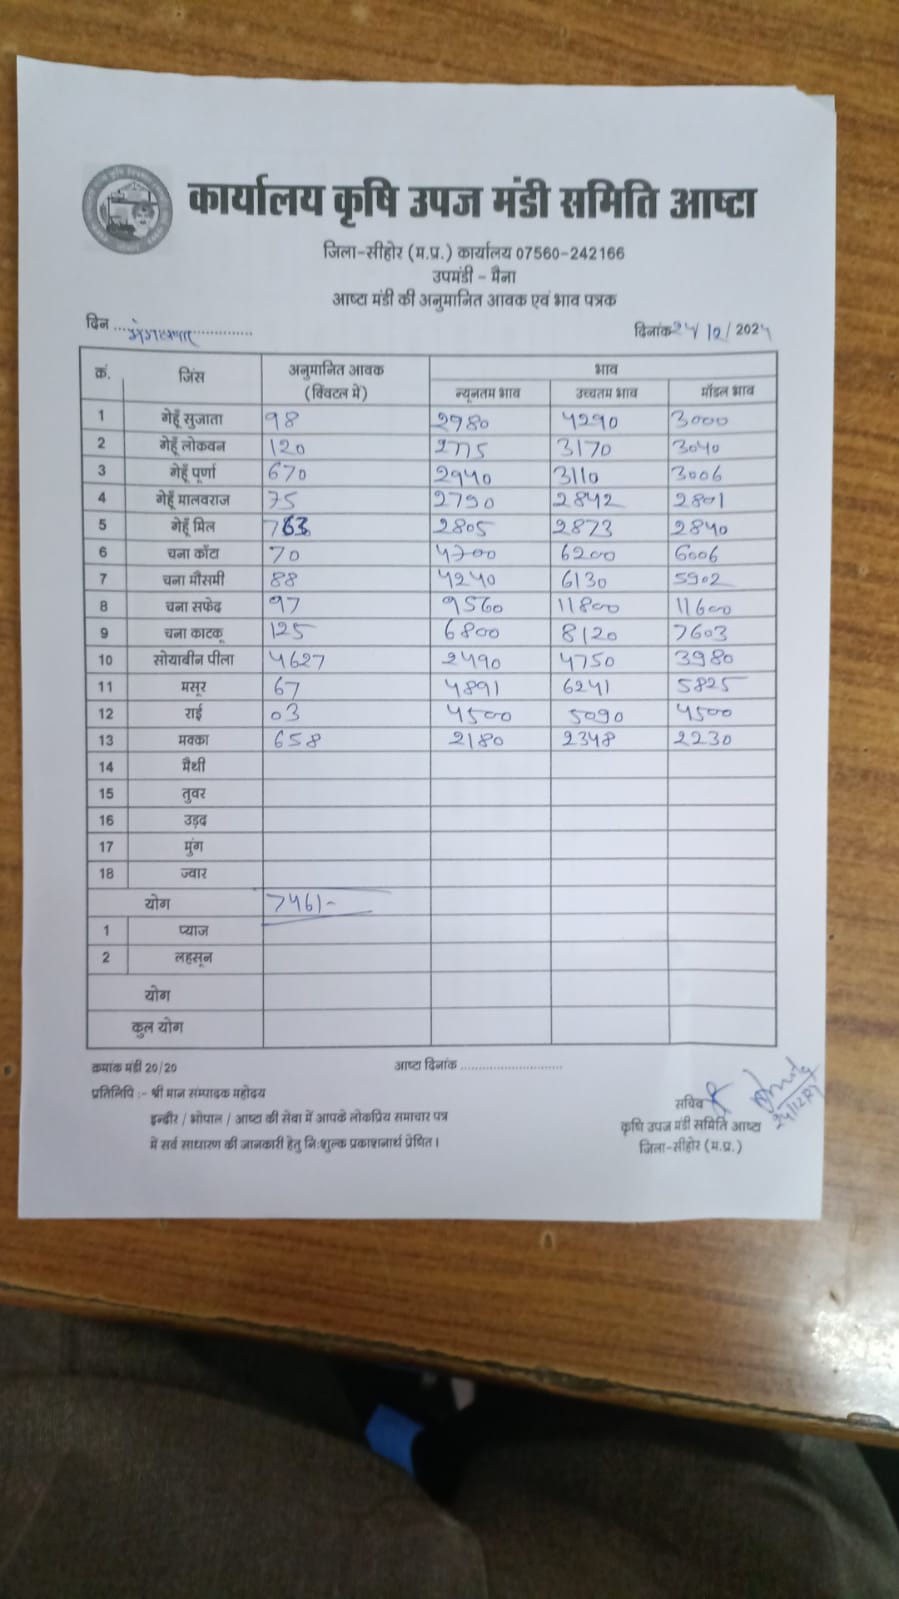 कार्यालय कृषि उपज मंडी समिति आष्टा
जिला-सीहोर (म.प्र.) कार्यालय 07560-242166
उपमंडी - मैना
आष्टा मंडी की अनुमानित आवक एवं भाव पत्रक
दिन ... मंगलवार ............... दिनांक 24/12/2024
क्रं. जिंस अनुमानित आवक (क्विंटल में) भाव
न्यूनतम भाव उच्चतम भाव मॉडल भाव
1 गेहूँ सुजाता 98 2980 4290 3000
2 गेहूँ लोकवन 120 2775 3170 3040
3 गेहूँ पूर्णा 670 2940 3110 3006
4 गेहूँ मालवराज 75 2790 2842 2801
5 गेहूँ मिल 763 2805 2873 2840
6 चना काँटा 70 4700 6200 6006
7 चना मौसमी 88 4240 6130 5902
8 चना सफेद 97 9560 11800 11600
9 चना काटकू 125 6800 8120 7603
10 सोयाबीन पीला 4627 2490 4750 3980
11 मसूर 67 4891 6241 5825
12 राई 03 4500 5090 4500
13 मक्का 658 2180 2348 2230
14 मैथी
15 तुवर
16 उड़द
17 मुंग
18 ज्वार
योग 7461-
1 प्याज
2 लहसून
योग
कुल योग
क्रमांक मंडी 20/20 आष्टा दिनांक ............................
प्रतिलिपि :- श्री मान सम्पादक महोदय
इन्दौर / भोपाल / आष्टा की सेवा में आपके लोकप्रिय समाचार पत्र
में सर्व साधारण की जानकारी हेतु नि:शुल्क प्रकाशनार्थ प्रेषित।
सचिव
24/12/24
कृषि उपज मंडी समिति आष्टा
जिला-सीहोर (म.प्र.)